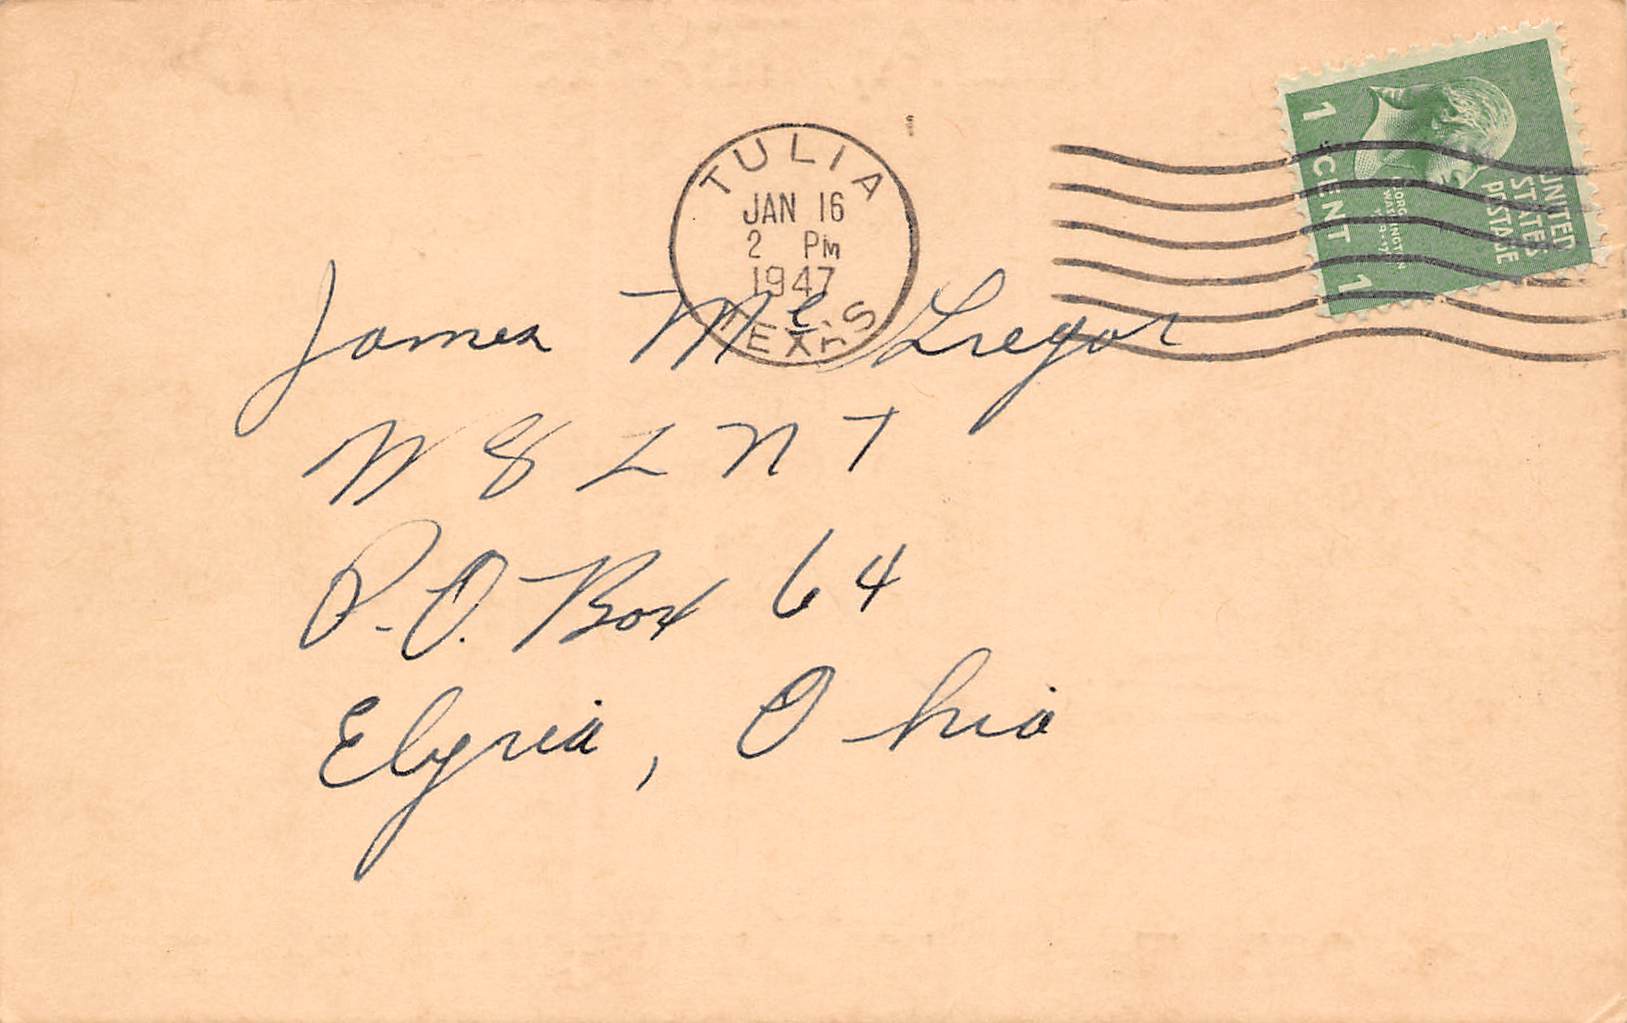 TULIA
JAN 16
2 PM
1947
TEXAS
UNITED
STATES
POSTAGE
1 CENT 1
James McGregor
W8LNT
P.O. Box 64
Elyria, Ohio